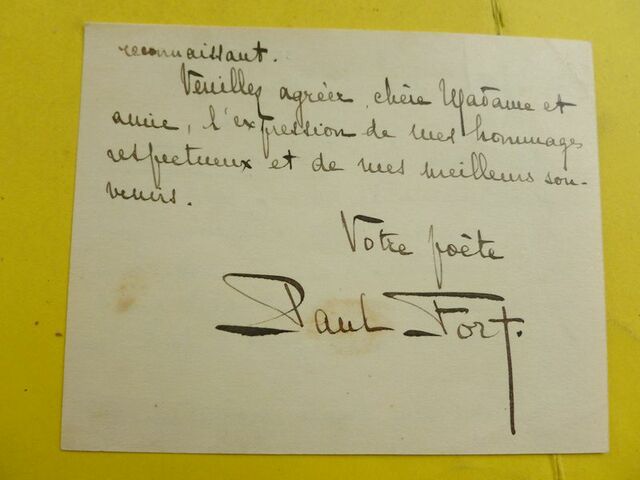 reconnaissant.
Veuillez agréer, chère Madame et
amie, l'expression de mes hommages
respectueux et de mes meilleurs sou-
venirs.
Votre poète
Paul Fort.